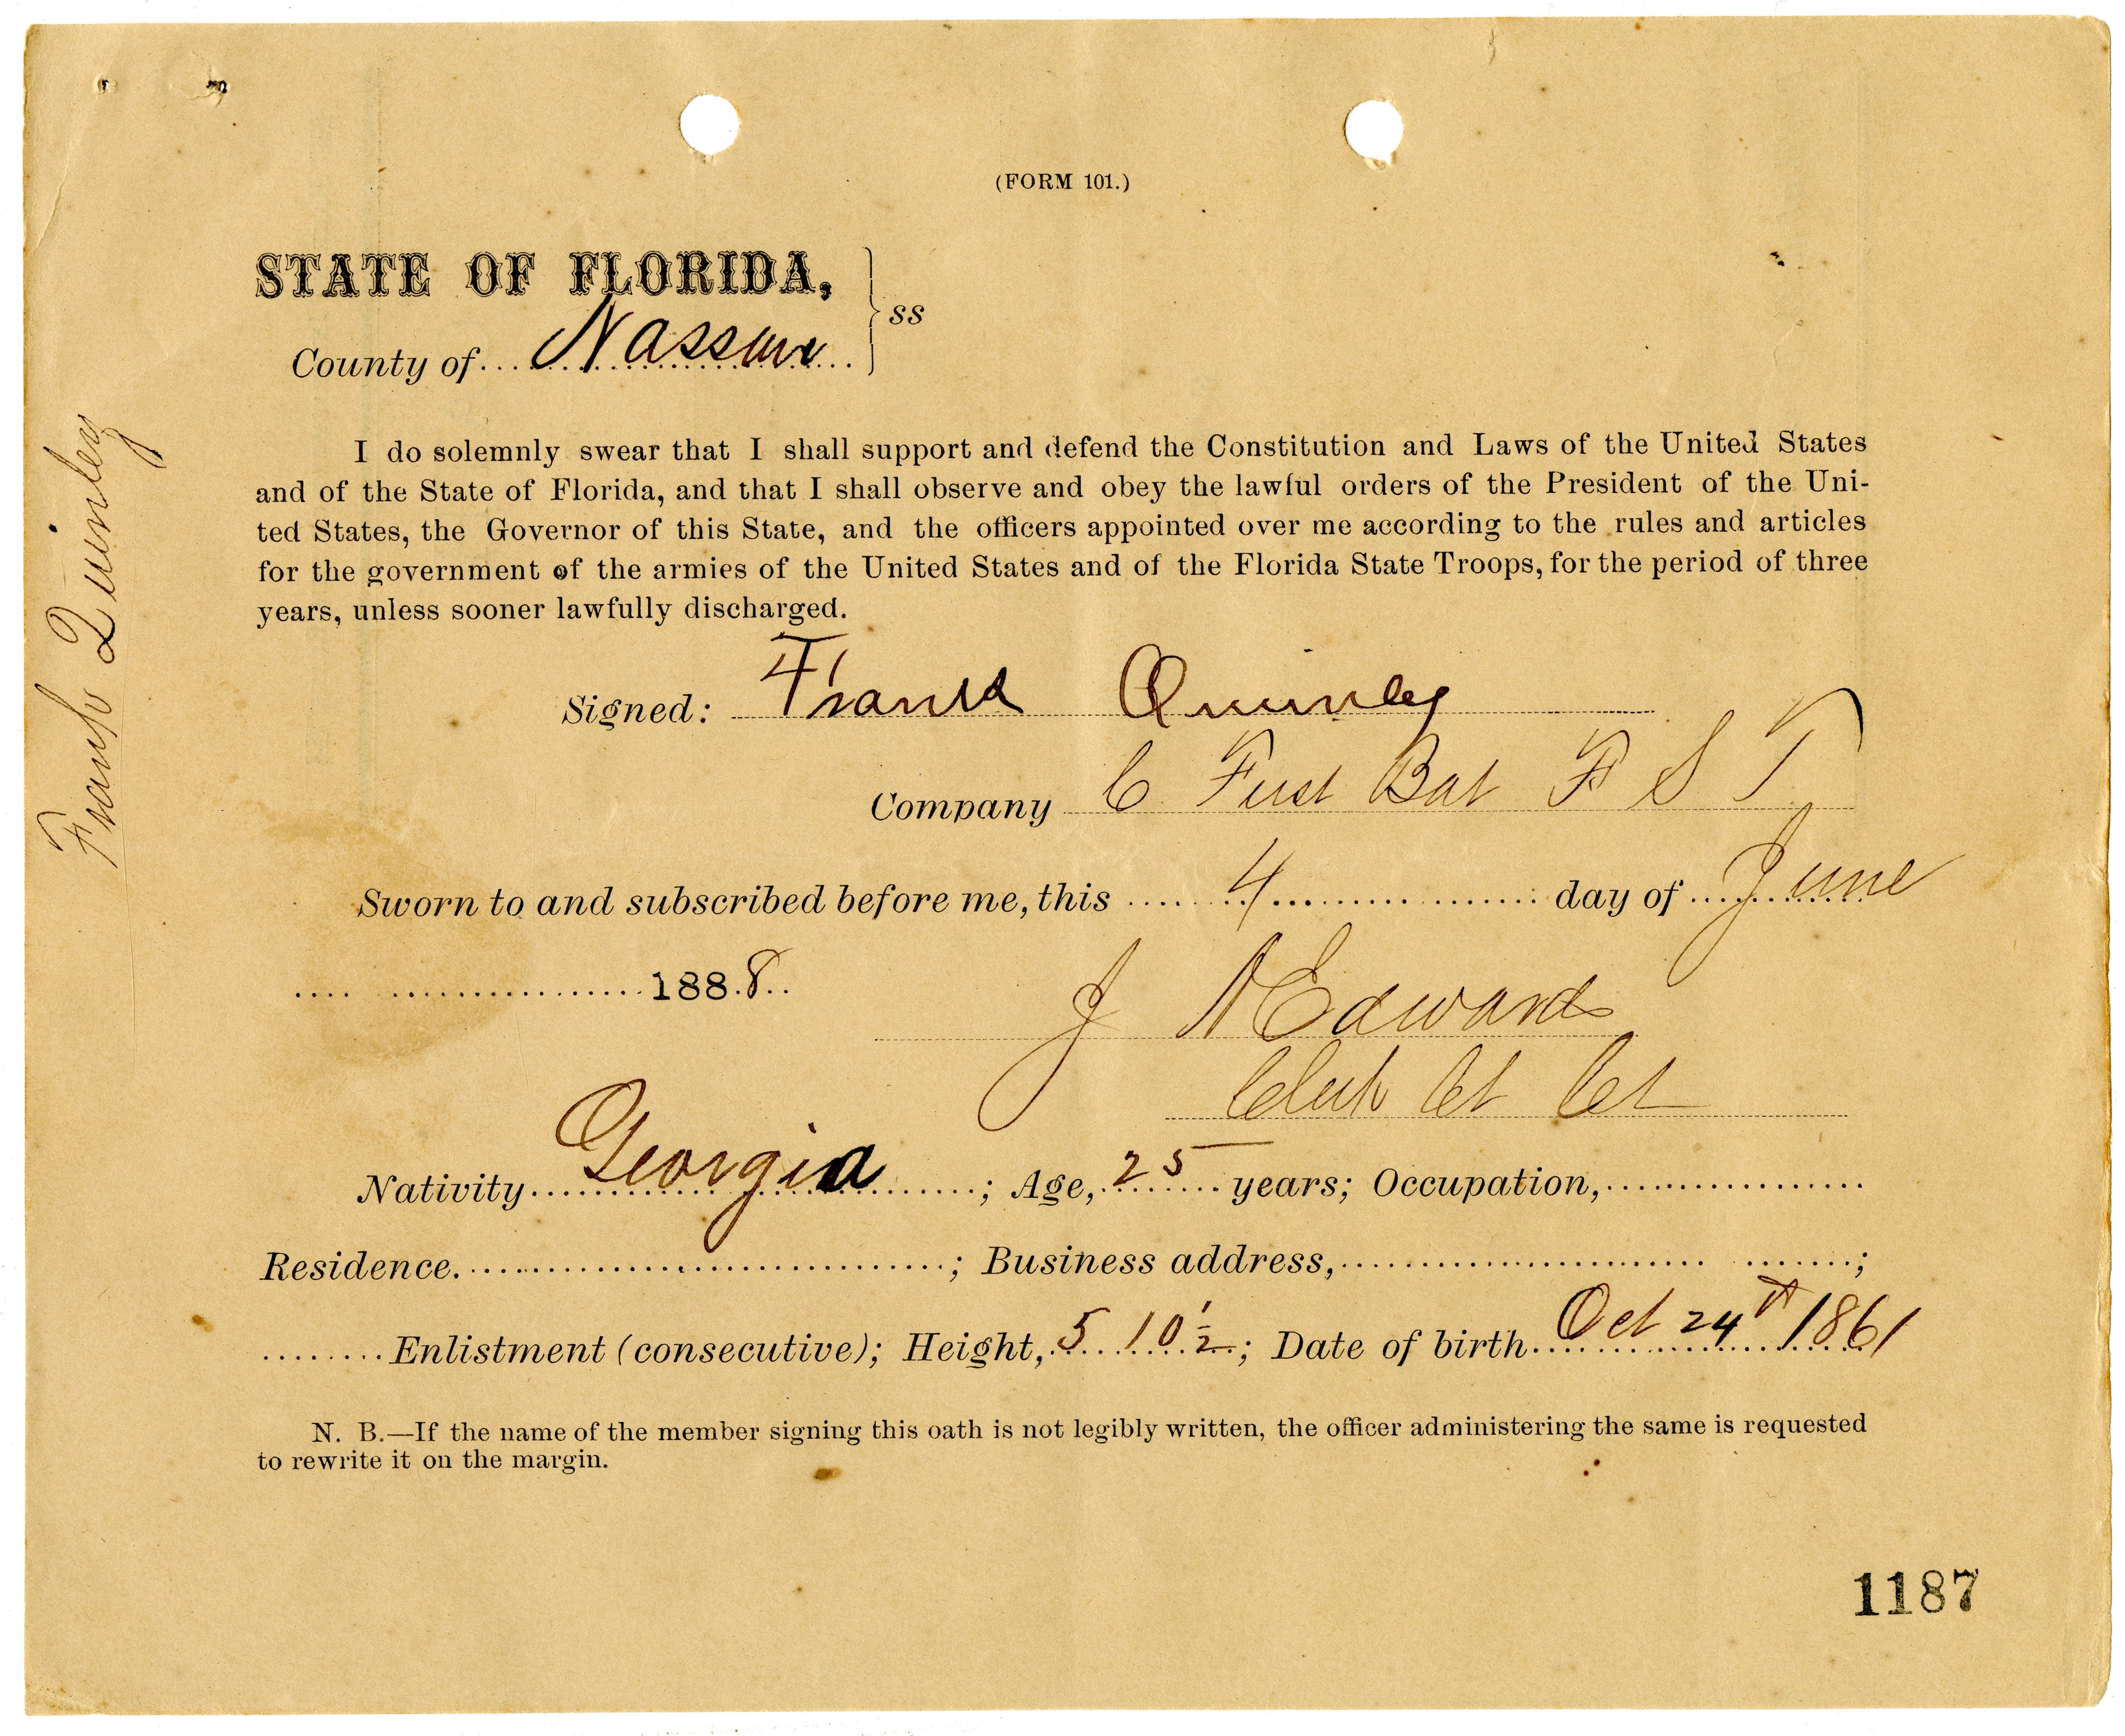 (FORM 101.)
STATE OF FLORIDA,
County of Nassau ss
I do solemnly swear that I shall support and defend the Constitution and Laws of the United States
and of the State of Florida, and that I shall observe and obey the lawful orders of the President of the Uni-
ted States, the Governor of this State, and the officers appointed over me according to the rules and articles
for the government of the armies of the United States and of the Florida State Troops, for the period of three
years, unless sooner lawfully discharged.
Signed: Frank Quinley
Company C First Bat F S T
Sworn to and subscribed before me, this 4 day of June
1888
J N Edwards
Clerk Ct Ct
Nativity Georgia; Age, 25 years; Occupation,
Residence. ; Business address, ;
Enlistment (consecutive); Height, 5 10 1/2; Date of birth Oct 24th 1861
N. B.—If the name of the member signing this oath is not legibly written, the officer administering the same is requested
to rewrite it on the margin.
1187
Frank Quinley